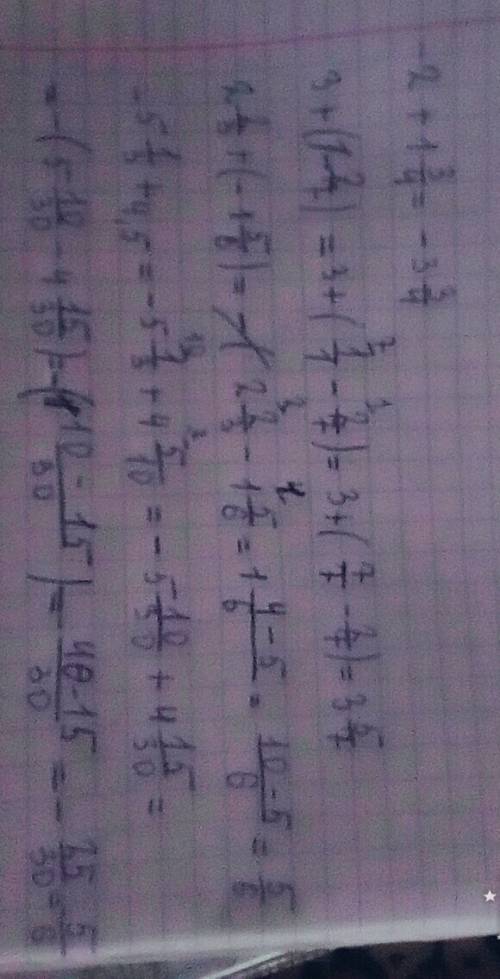 -2 + 1 3/4 = -3 3/4
3 + (1 - 2/7) = 3 + (1/1 - 2/7) = 3 + (7/7 - 2/7) = 3 5/7
+ (-1 5/6) = 2 2/3 - 1 5/6 = 1 4-5/6 = 10-5/6 = 5/6
-5 1/3 + 4,5 = -5 1/3 + 4 5/10 = -5 10/30 + 4 15/30 =
= -(5 10/30 - 4 15/30) = -(10-15/30) = - 40-15/30 = - 25/30 = 5/6